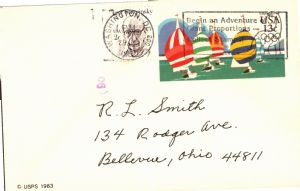 WASHINGTON, DC
Begin an Adventure
Proportions
USA
13c
R. L. Smith
134 Rodger Ave.
Bellevue, Ohio 44811
© USPS 1983